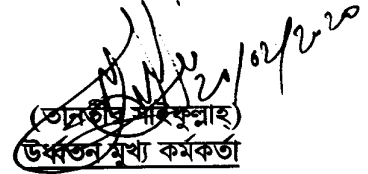 ২০/০২/২০২০
(তানভীর সাইফুল্লাহ্)
উর্ধ্বতন মুখ্য কর্মকর্তা